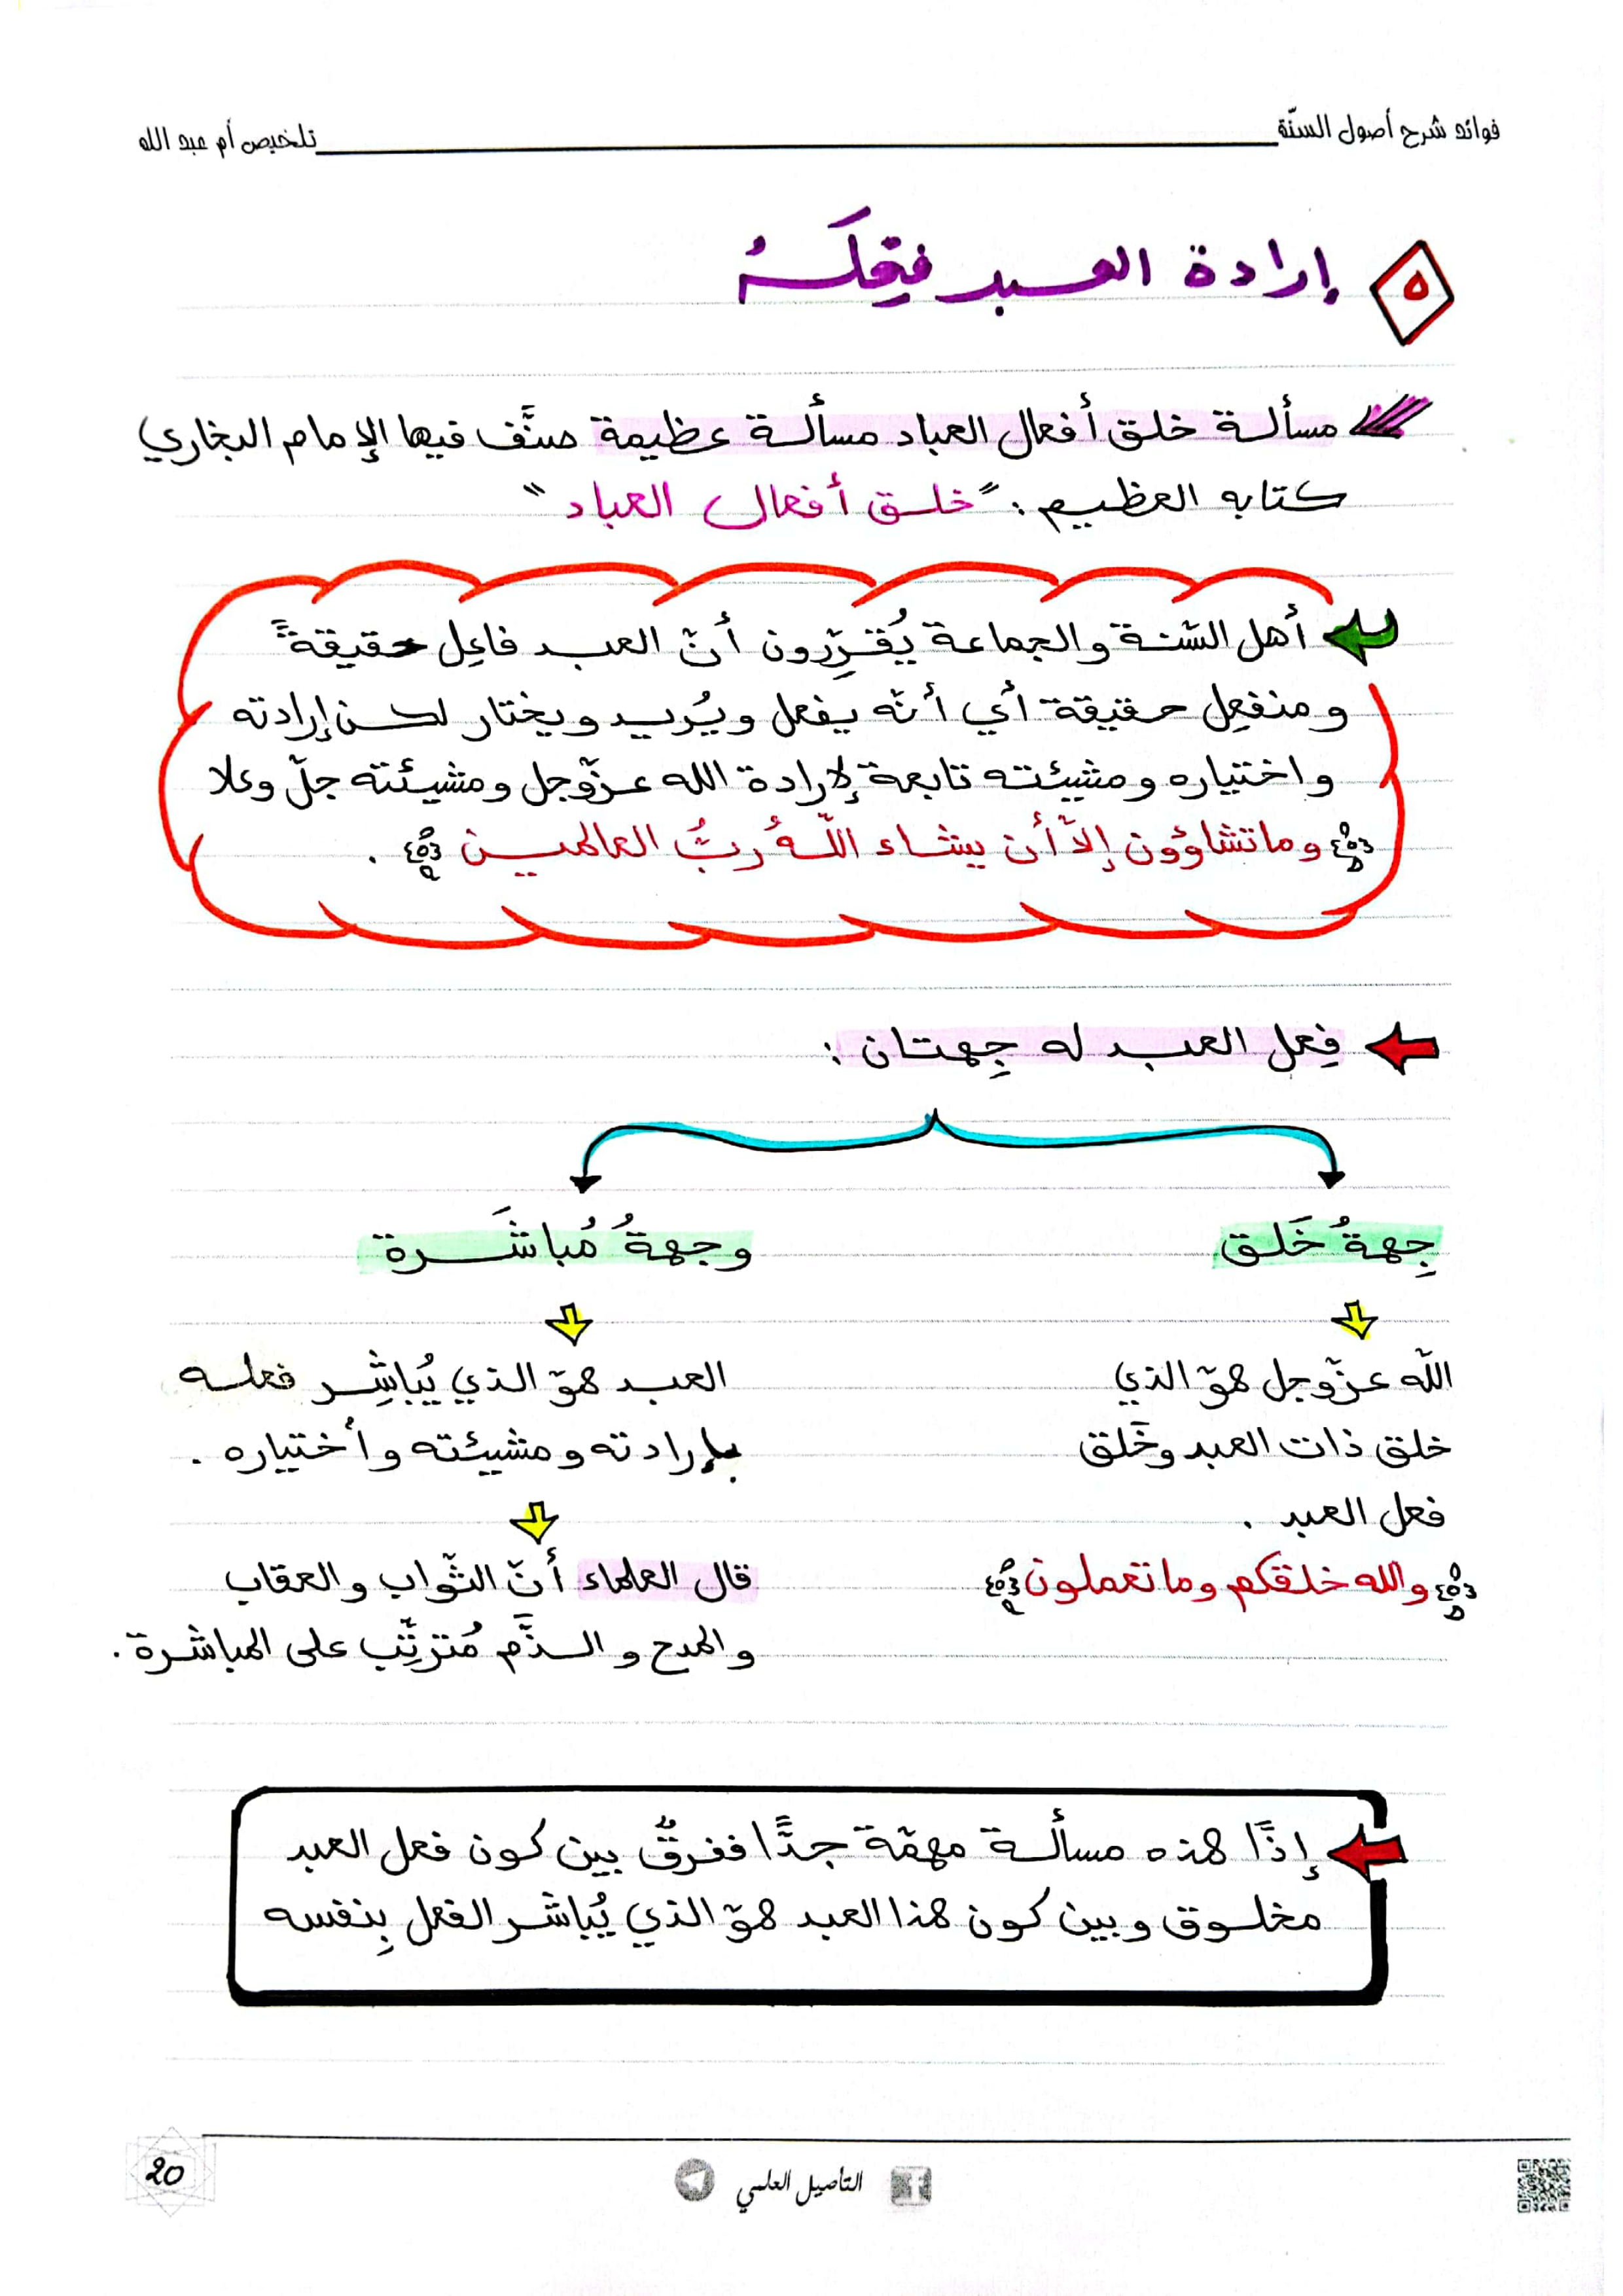 فوائد شرح أصول السنّة
تلخيص أم عبد الله
٥
إرادة العبد
مسألة خلق أفعال العباد مسألة عظيمة صنَّف فيها الإمام البخاري
كتابه العظيم : "خلق أفعال العباد"
أهل السّنة والجماعة يُقرِّرون أنّ العبد فاعِل حقيقةً
ومنفعِل حقيقة أي أنّه يفعل ويُريد ويختار لكن إرادته
واختياره ومشيئته تابعة لإرادة الله عزّوجل ومشيئته جلّ وعلا
﴿وما تشاؤون إلاّ أن يشاء اللّهُ ربُّ العالمين﴾ .
فِعل العبد له جِهتان :
جِهةُ خَلق
وجهةُ مُباشَرة
اللّه عزّوجل هوّ الذي
خلق ذات العبد وخَلق
فعل العبد .
﴿والله خلقكم وما تعملون﴾
العبد هوّ الذي يُباشِر فعله
بإرادته ومشيئته وأختياره .
قال العلماء أنّ الثّواب والعقاب
والمدح والذَّم مُترتِّب على المباشرة .
إذًا هذه مسألة مهمّة جدًّا ففرقٌ بين كون فعل العبد
مخلوق وبين كون هذا العبد هوّ الذي يُباشر الفعل بِنفسه
التأصيل العلمي
20